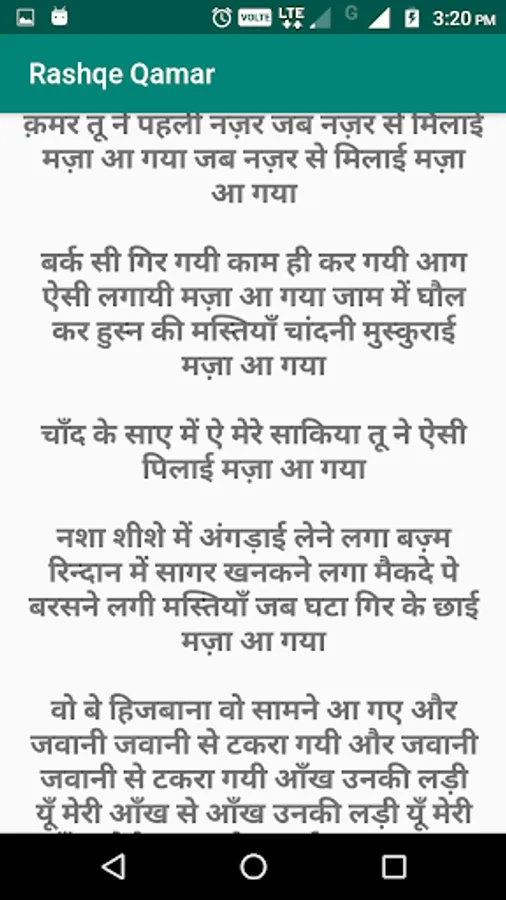 VOLTE LTE G 3:20 PM
Rashqe Qamar
क़मर तू ने पहली नज़र जब नज़र से मिलाई
मज़ा आ गया जब नज़र से मिलाई मज़ा
आ गया
बर्क सी गिर गयी काम ही कर गयी आग
ऐसी लगायी मज़ा आ गया जाम में घौल
कर हुस्न की मस्तियाँ चांदनी मुस्कुराई
मज़ा आ गया
चाँद के साए में ऐ मेरे साकिया तू ने ऐसी
पिलाई मज़ा आ गया
नशा शीशे में अंगड़ाई लेने लगा बज़्म
रिन्दान में सागर खनकने लगा मैकदे पे
बरसने लगी मस्तियाँ जब घटा गिर के छाई
मज़ा आ गया
वो बे हिजबाना वो सामने आ गए और
जवानी जवानी से टकरा गयी और जवानी
जवानी से टकरा गयी आँख उनकी लड़ी
यूँ मेरी आँख से आँख उनकी लड़ी यूँ मेरी